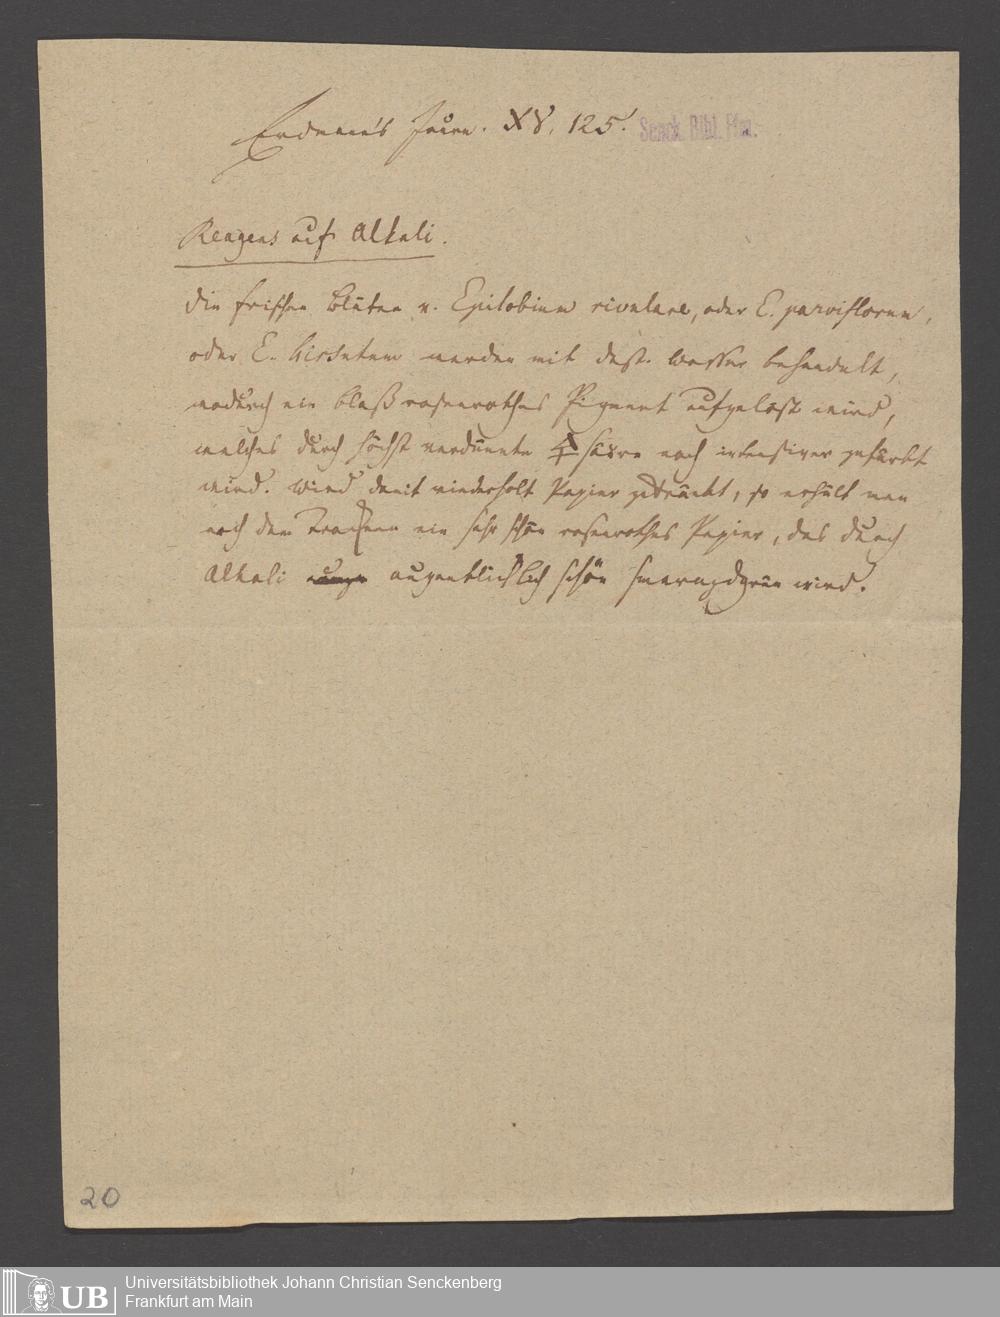 Erdmann's Journ. XV. 125.
Senck. Bibl. Ffm.
Reagens auf Alkali.
Die frischen Blüten v. Epilobium rivulare, oder E. parviflorum,
oder E. hirsutum werden mit dest. Wasser behandelt,
wodurch ein blaß rosenrothes Pigment aufgelöst wird,
welches durch höchst verdünnte 🜍säure noch intensiver gefärbt
wird. Wird damit wiederholt Papier getränkt, so erhält man
nach dem Trocknen ein sehr schön rosenrothes Papier, das durch
Alkali augenblicklich schön smaragdgrün wird.
20
UB
Universitätsbibliothek Johann Christian Senckenberg
Frankfurt am Main